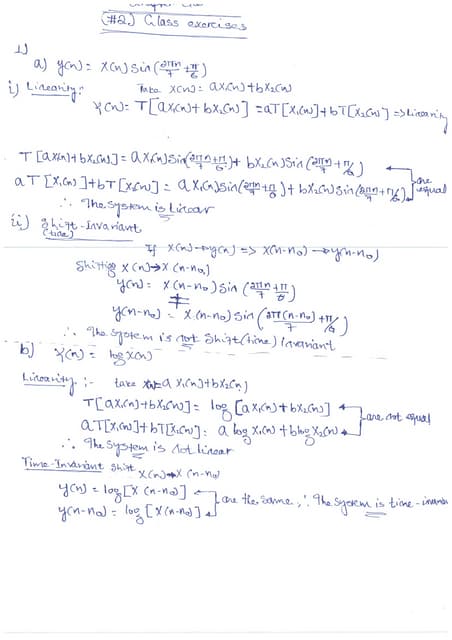 (#2.) Class exercises
1)
a) y(n) = x(n) sin(2πn/7 + π/6)
i) Linearity: Take x(n) = ax₁(n) + bx₂(n)
y(n) = T[ax₁(n) + bx₂(n)] = aT[x₁(n)] + bT[x₂(n)] => Linearity
T[ax₁(n) + bx₂(n)] = ax₁(n) sin(2πn/7 + π/6) + bx₂(n) sin(2πn/7 + π/6)
aT[x₁(n)] + bT[x₂(n)] = ax₁(n) sin(2πn/7 + π/6) + bx₂(n) sin(2πn/7 + π/6) are equal
∴ The system is Linear
ii) Shift-Invariant
(time)
If x(n) → y(n) => x(n-n₀) → y(n-n₀)
Shifting x(n) → x(n-n₀)
y(n) = x(n-n₀) sin(2πn/7 + π/6)
≠
y(n-n₀) = x(n-n₀) sin(2π(n-n₀)/7 + π/6)
∴ The system is not Shift (time) Invariant
b) y(n) = log x(n)
Linearity :- take x(n) = ax₁(n) + bx₂(n)
T[ax₁(n) + bx₂(n)] = log[ax₁(n) + bx₂(n)]
aT[x₁(n)] + bT[x₂(n)] = a log x₁(n) + b log x₂(n) are not equal
∴ The system is not Linear
Time-Invariant Shift x(n) → x(n-n₀)
y(n) = log[x(n-n₀)]
y(n-n₀) = log[x(n-n₀)] are the same, ∴ The system is time-invaria